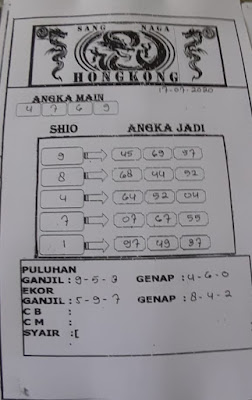 SANG NAGA
HONGKONG
17-07-2020
ANGKA MAIN
4 7 6 9
SHIO ANGKA JADI
9 45 69 97
8 68 44 92
4 64 52 04
7 07 67 59
1 97 49 87
PULUHAN
GANJIL : 9-5-3 GENAP : 4-6-0
EKOR
GANJIL : 5-9-7 GENAP : 8-4-2
C B :
C M :
SYAIR :[